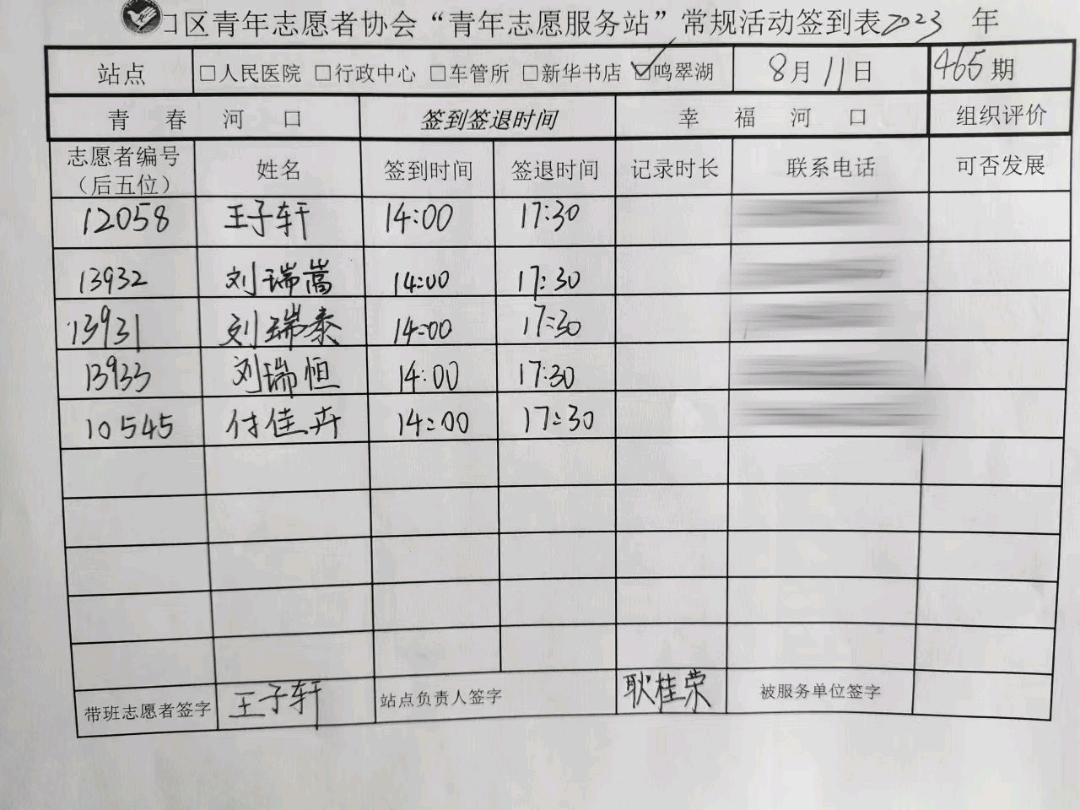 口区青年志愿者协会“青年志愿服务站”常规活动签到表2023 年
站点 □人民医院 □行政中心 □车管所 □新华书店 ☑鸣翠湖 8月11日 465期
青 春 河 口 签到签退时间 幸 福 河 口 组织评价
志愿者编号
（后五位） 姓名 签到时间 签退时间 记录时长 联系电话 可否发展
12058 王子轩 14:00 17:30
13932 刘瑞嵩 14:00 17:30
13931 刘瑞泰 14:00 17:30
13933 刘瑞恒 14:00 17:30
10545 付佳卉 14:00 17:30
带班志愿者签字 王子轩 站点负责人签字 耿桂荣 被服务单位签字